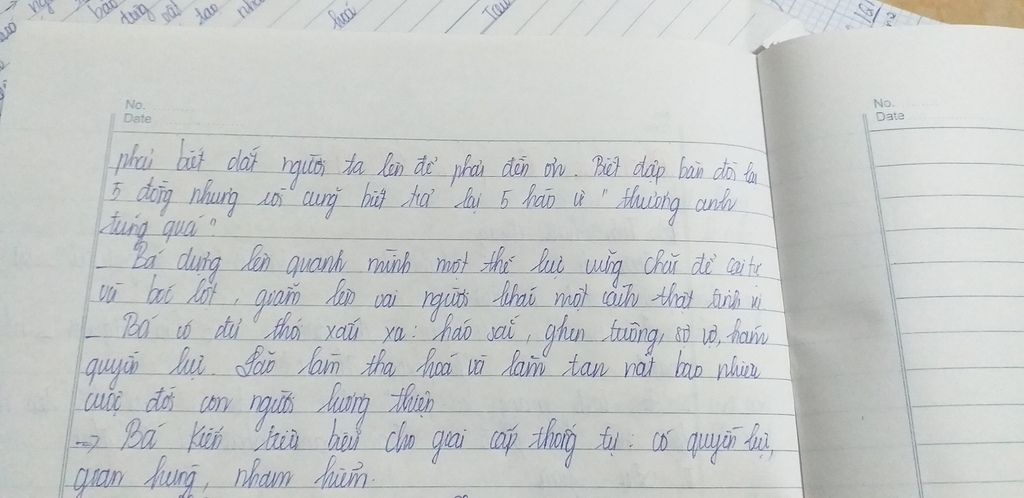 No.
Date
No.
Date
phải biết dắt người ta lên để phải đền ơn. Biết đập bàn đòi lại
5 đồng nhưng rồi cũng biết trả lại 5 hào vì "thương anh
túng quá"
_ Bá dựng lên quanh mình một thế lực vững chãi để cai trị
và bóc lột, giẫm lên vai người khác một cách thật tinh vi
_ Bá có đủ thói xấu xa: háo sắc, ghen tuông, sợ vợ, ham
quyền lực. Lão làm tha hoá và làm tan nát bao nhiêu
cuộc đời con người lương thiện
-> Bá Kiến tiêu biểu cho giai cấp thống trị: có quyền lực,
gian hùng, nham hiểm.